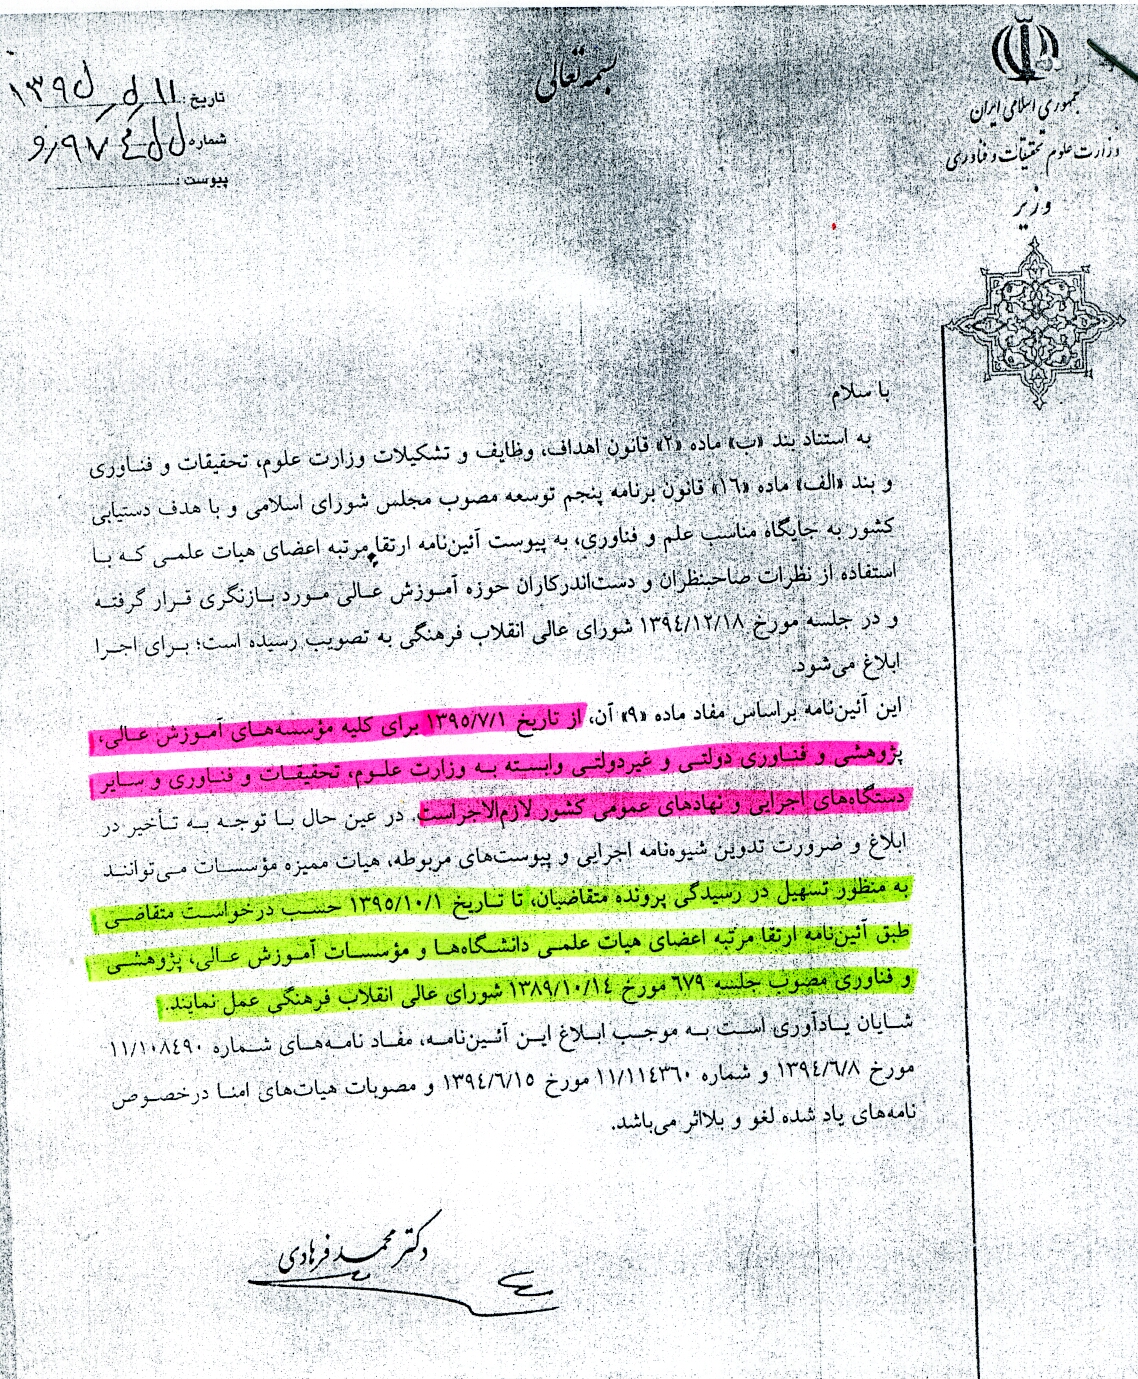 بسمه تعالی
جمهوری اسلامی ایران
وزارت علوم تحقیقات و فناوری
وزیر
تاریخ:
شماره
پیوست:
با سلام
به استناد بند «ب» ماده «۲» قانون اهداف، وظایف و تشکیلات وزارت علوم، تحقیقات و فناوری
و بند «الف» ماده «۱۶» قانون برنامه پنجم توسعه مصوب مجلس شورای اسلامی و با هدف دستیابی
کشور به جایگاه مناسب علم و فناوری، به پیوست آئین‌نامه ارتقا مرتبه اعضای هیات علمی که با
استفاده از نظرات صاحبنظران و دست‌اندرکاران حوزه آموزش عالی مورد بازنگری قرار گرفته
و در جلسه مورخ ۱۳۹٤/۱۲/۱۸ شورای عالی انقلاب فرهنگی به تصویب رسیده است؛ برای اجرا
ابلاغ می‌شود.
این آئین‌نامه براساس مفاد ماده «۹» آن، از تاریخ ۱۳۹٥/۷/۱ برای کلیه مؤسسه‌های آموزش عالی،
پژوهشی و فناوری دولتی و غیردولتی وابسته به وزارت علوم، تحقیقات و فناوری و سایر
دستگاه‌های اجرایی و نهادهای عمومی کشور لازم‌الاجراست. در عین حال با توجه به تأخیر در
ابلاغ و ضرورت تدوین شیوه‌نامه اجرایی و پیوست‌های مربوطه، هیات ممیزه مؤسسات می‌توانند
به منظور تسهیل در رسیدگی پرونده متقاضیان، تا تاریخ ۱۳۹٥/۱۰/۱ حسب درخواست متقاضی
طبق آئین‌نامه ارتقا مرتبه اعضای هیات علمی دانشگاه‌ها و مؤسسات آموزش عالی، پژوهشی
و فناوری مصوب جلسه ٦۷۹ مورخ ۱۳۸۹/۱۰/۱٤ شورای عالی انقلاب فرهنگی عمل نمایند.
شایان یادآوری است به موجب ابلاغ این آئین‌نامه، مفاد نامه‌های شماره ۱۱/۱۰۸٤۹۰
مورخ ۱۳۹٤/٦/۸ و شماره ۱۱/۱۱٤۳٦۰ مورخ ۱۳۹٤/٦/۱٥ و مصوبات هیات‌های امنا درخصوص
نامه‌های یاد شده لغو و بلااثر می‌باشد.
دکتر محمد فرهادی